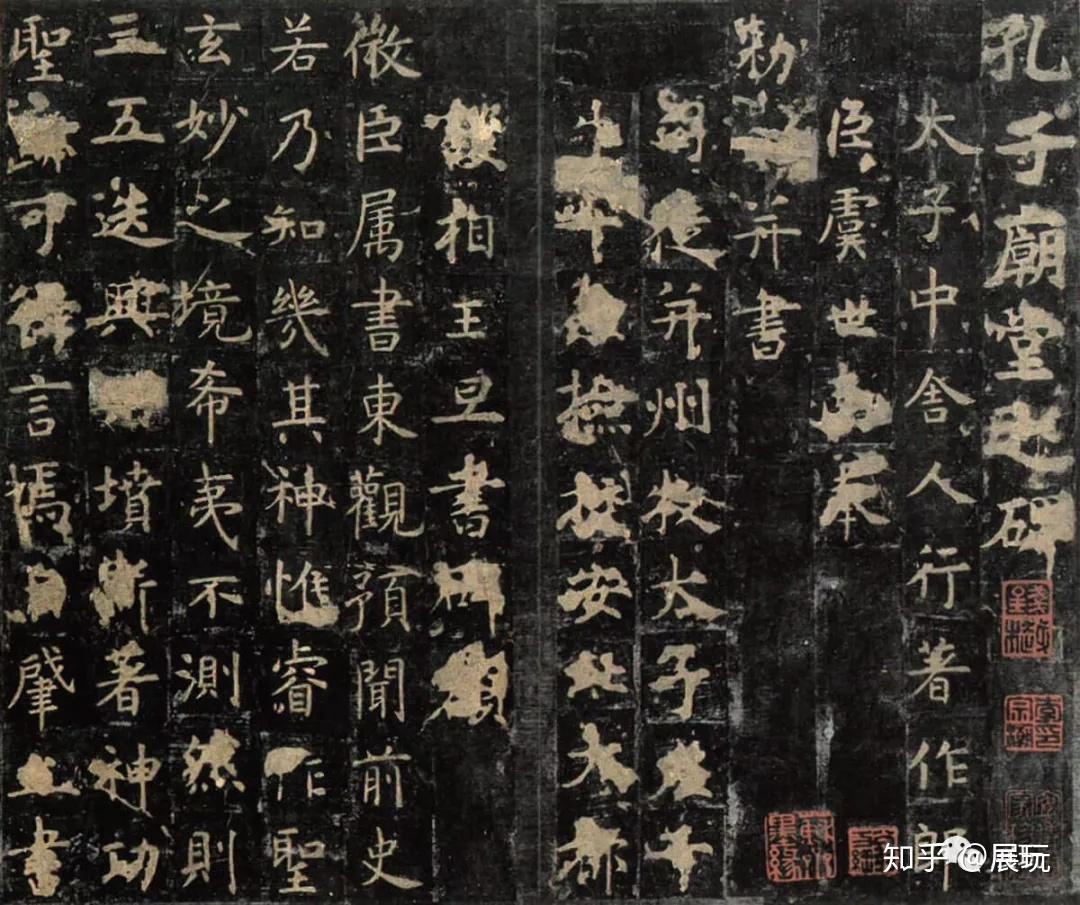 孔子廟堂之碑
太子中舍人行著作郎
臣虞世南奉
勅并書
司徒并州牧太子左千
牛率撿挍安北大都
護相王旦書碑額
微臣属書東觀預聞前史
若乃知幾其神惟睿作聖
玄妙之境希夷不測然則
三五迭興墳斯著神功
聖迹可得言焉自肇立書
知乎 @展玩